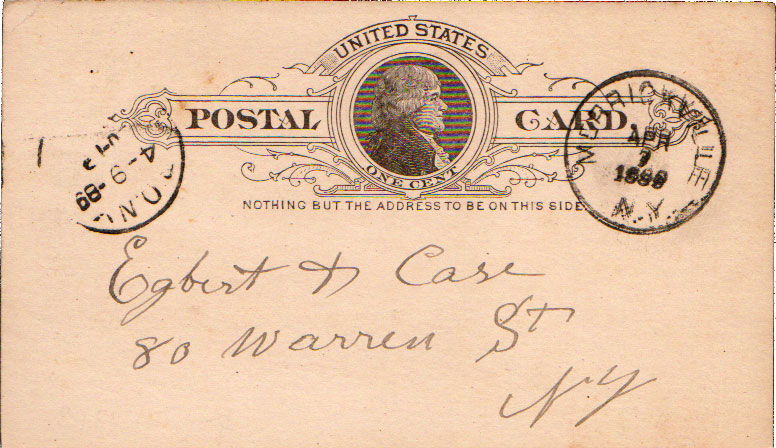 UNITED STATES
POSTAL CARD
ONE CENT
NOTHING BUT THE ADDRESS TO BE ON THIS SIDE.
APR
7
N.Y.
4-9
Egbert & Case
80 Warren St
NY